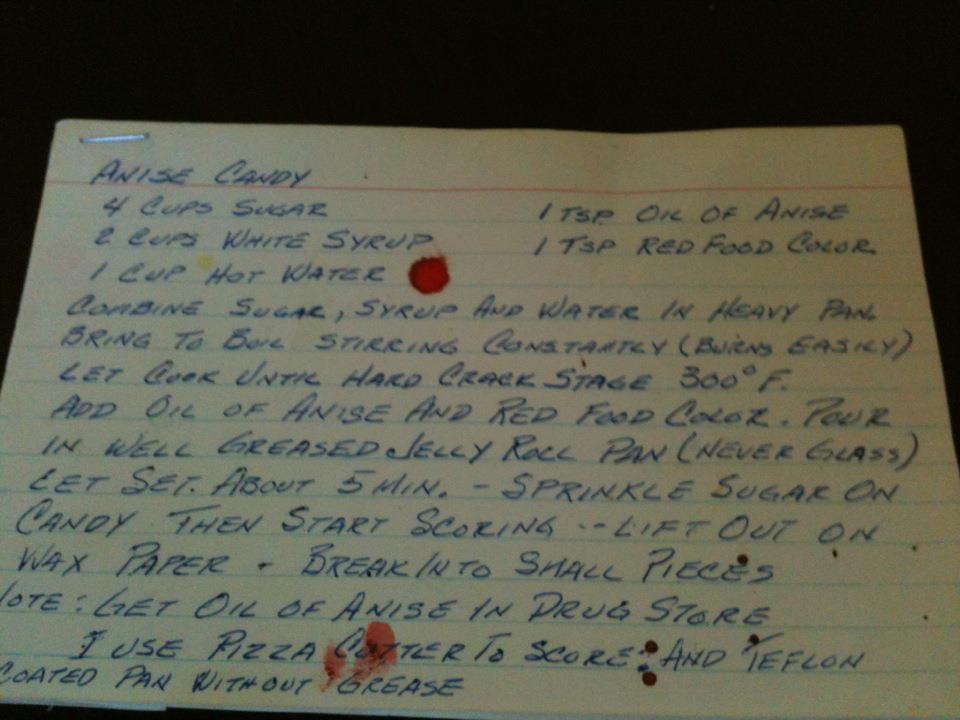 ANISE CANDY
4 CUPS SUGAR 1 TSP. OIL OF ANISE
2 CUPS WHITE SYRUP 1 TSP RED FOOD COLOR
1 CUP HOT WATER
COMBINE SUGAR, SYRUP AND WATER IN HEAVY PAN.
BRING TO BOIL STIRRING CONSTANTLY (BURNS EASILY)
LET COOK UNTIL HARD CRACK STAGE 300° F.
ADD OIL OF ANISE AND RED FOOD COLOR. POUR
IN WELL GREASED JELLY ROLL PAN (NEVER GLASS)
LET SET. ABOUT 5 MIN. - SPRINKLE SUGAR ON
CANDY THEN START SCORING -- LIFT OUT ON
WAX PAPER - BREAK INTO SMALL PIECES
NOTE: GET OIL OF ANISE IN DRUG STORE
I USE PIZZA CUTTER TO SCORE: AND TEFLON
COATED PAN WITHOUT GREASE